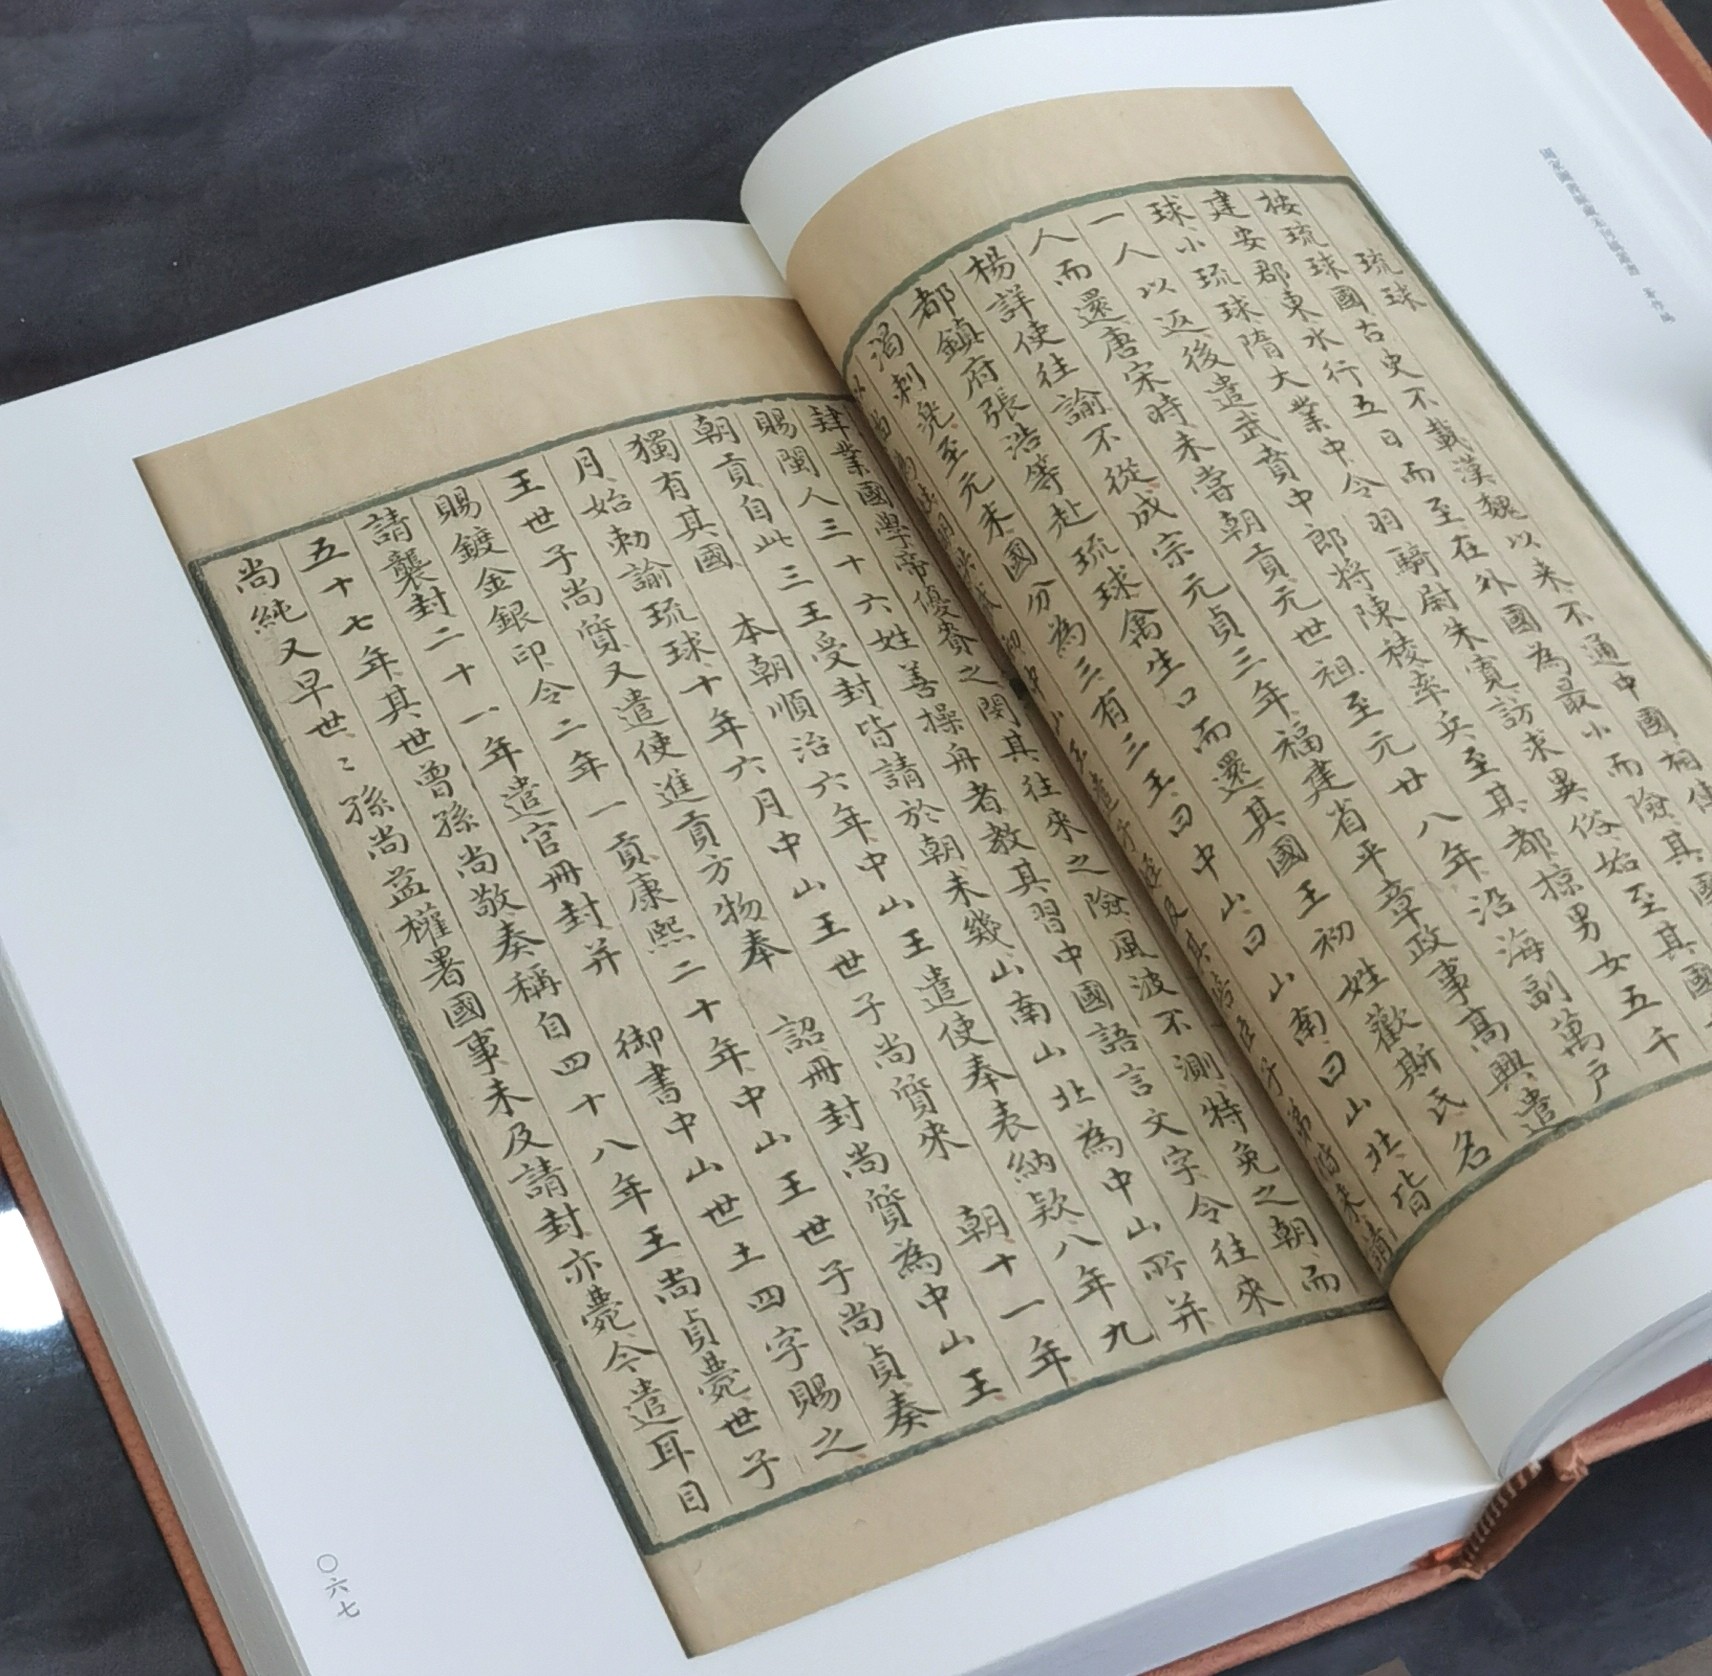 琉球
按琉球國古史不載漢魏以來不通中國相傳其國
建安郡東水行五日而至在外國為最小而險其國
球小琉球隋大業中令羽騎尉朱寬訪求異俗始至其國
一人以返後遣武賁中郎將陳稜率兵至其都掠男女五千
人而還唐宋時未嘗朝貢元世祖至元廿八年沿海副萬戶
楊詳使往諭不從成宗元貞三年福建省平章政事高興遣
都鎮府張浩等赴琉球禽生口而還其國王初姓歡斯氏名
渴剌兜至元末國分為三有三王曰中山曰山南曰山北皆
肄業國學帝優賚之閔其往來之險風波不測特免之朝而
賜閩人三十六姓善操舟者教其習中國語言文字令往來
朝貢自此三王受封皆請於朝未幾山南山北為中山所并
獨有其國 本朝順治六年中山王遣使奉表納欵八年九
月始勅諭琉球十年六月中山王世子尚質來 朝十一年
王世子尚質又遣使進貢方物奉 詔冊封尚質為中山王
賜鍍金銀印令二年一貢康熙二十年中山王世子尚貞奏
請襲封二十一年遣官冊封并 御書中山世土四字賜之
五十七年其世曾孫尚敬奏稱自四十八年王尚貞薨世子
尚純又早世〻孫尚益權署國事未及請封亦薨今遣耳目
〇六七